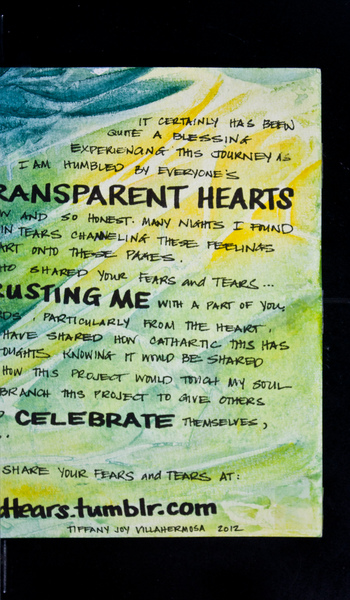 IT CERTAINLY HAS BEEN
QUITE A BLESSING
EXPERIENCING THIS JOURNEY AS
I AM HUMBLED BY EVERYONE'S
RANSPARENT HEARTS
W AND SO HONEST. MANY NIGHTS I FOUND
IN TEARS CHANNELING THESE FEELINGS
ART ONTO THESE PAGES.
HO SHARED YOUR FEARS and TEARS...
RUSTING ME WITH A PART OF YOU,
RDS, PARTICULARLY FROM THE HEART.
HAVE SHARED HOW CATHARTIC THIS HAS
OUGHTS KNOWING IT WOULD BE SHARED
HOW THIS PROJECT WOULD TOUCH MY SOUL
BRANCH THIS PROJECT TO GIVE OTHERS
CELEBRATE THEMSELVES,
..
SHARE YOUR FEARS and TEARS AT:
dtears.tumblr.com
TIFFANY JOY VILLAHERMOSA 2012